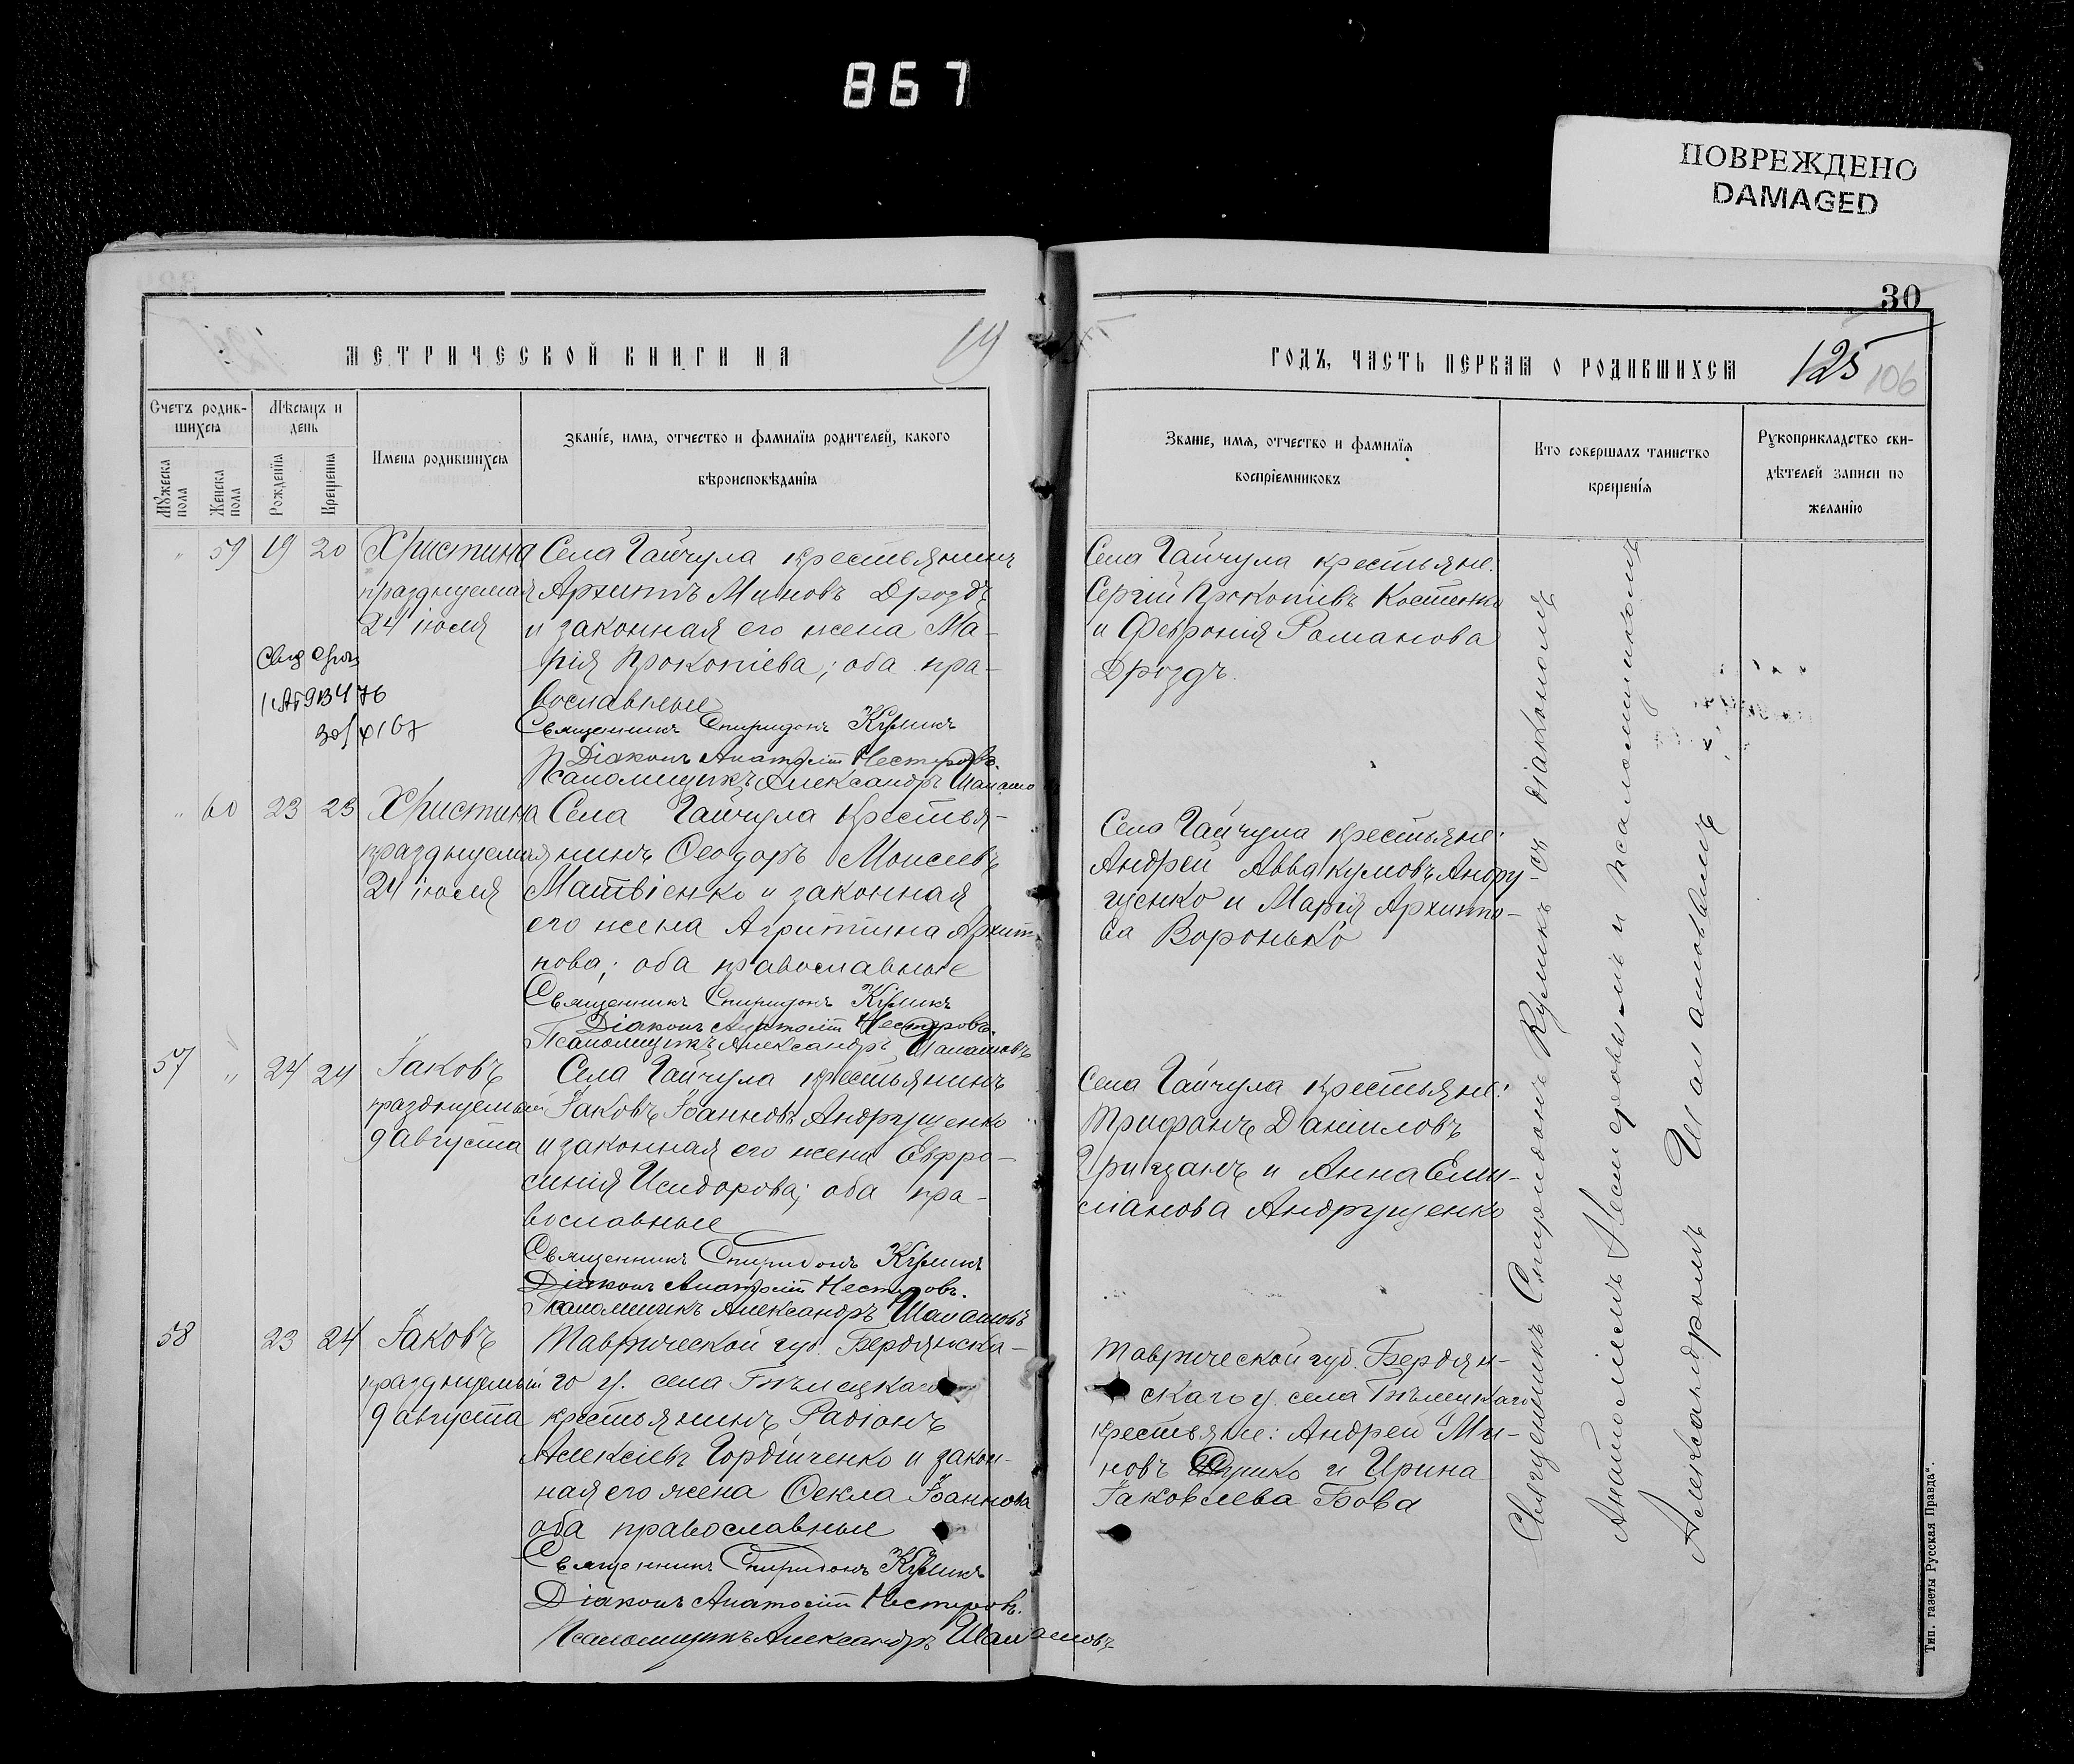 867
ПОВРЕЖДЕНО
DAMAGED
30
МЕТРИЧЕСКОЙ КНИГИ НА 19
ГОДЪ, ЧАСТЬ ПЕРВАЯ О РОДИВШИХСЯ
125 106
Счетъ родив-
шихся
Мѣсяцъ и
день
Мужеска
пола
Женска
пола
Рожденія
Крещенія
Имена родившихся
Званіе, имя, отчество и фамилія родителей, какого
вѣроисповѣданія
Званіе, имя, отчество и фамилія
воспріемниковъ
Кто совершалъ таинство
крещенія
Рукоприкладство сви-
дѣтелей записи по
желанію
" 59 19 20 Христина
празднуемая
24 іюля
Села Гайчула крестьянинъ
Архиппъ Миновъ Дроздъ
и законная его жена Ма-
рія Прокопіева; оба пра-
вославные
Священникъ Спиридонъ Куликъ
Діаконъ Анатолій Нестеровъ.
Псаломщикъ Александръ Шаламовъ
Села Гайчула крестьяне:
Сергій Прокопіевъ Костенко
и Февронія Романова
Дроздъ.
" 60 23 23 Христина
празднуемая
24 іюля
Села Гайчула крестья-
нинъ Ѳеодоръ Моисеевъ
Матвіенко и законная
его жена Агриппина Архип-
пова; оба православные
Священникъ Спиридонъ Куликъ
Діаконъ Анатолій Нестеровъ.
Псаломщикъ Александръ Шаламовъ
Села Гайчула крестьяне:
Андрей Аввакумовъ Андру-
щенко и Марія Архиппо-
ва Воронько
57 " 24 24 Іаковъ
празднуемый
9 августа
Села Гайчула крестьянинъ
Іаковъ Іоанновъ Андрущенко
и законная его жена Евфро-
синія Исидорова; оба пра-
вославные
Священникъ Спиридонъ Куликъ
Діаконъ Анатолій Нестеровъ.
Псаломщикъ Александръ Шаламовъ
Села Гайчула крестьяне:
Трифанъ Даніиловъ
Грицанъ и Анна Еми-
ліанова Андрущенко
58 23 24 Іаковъ
празднуемый
9 августа
Таврической губ. Бердянска-
го у. села
крестьянинъ Радіонъ
Алексіевъ Гордіиченко и закон-
ная его жена Ѳекла Іоаннова
оба православные
Священникъ Спиридонъ Куликъ
Діаконъ Анатолій Нестеровъ.
Псаломщикъ Александръ Шаламовъ
Таврической губ. Бердян-
скаго у. села
крестьяне: Андрей Ми-
новъ и Ирина
Іаковлева Бова
Священникъ Спиридонъ Куликъ съ діакономъ
Анатоліемъ Нестеровымъ и псаломщикомъ
Александромъ Шаламовымъ
Тип. газеты Русская Правда".